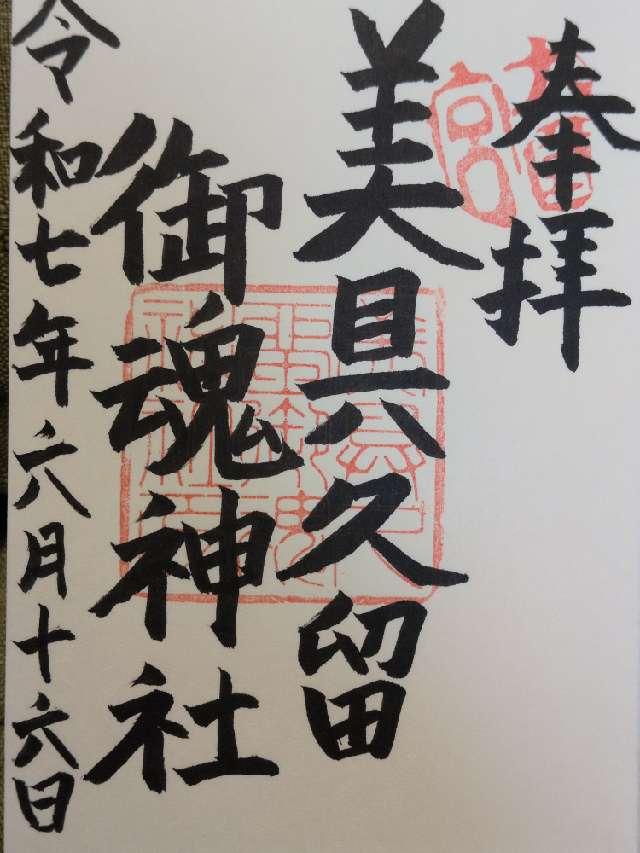 奉拝
美具久留
御魂神社
令和七年六月十六日